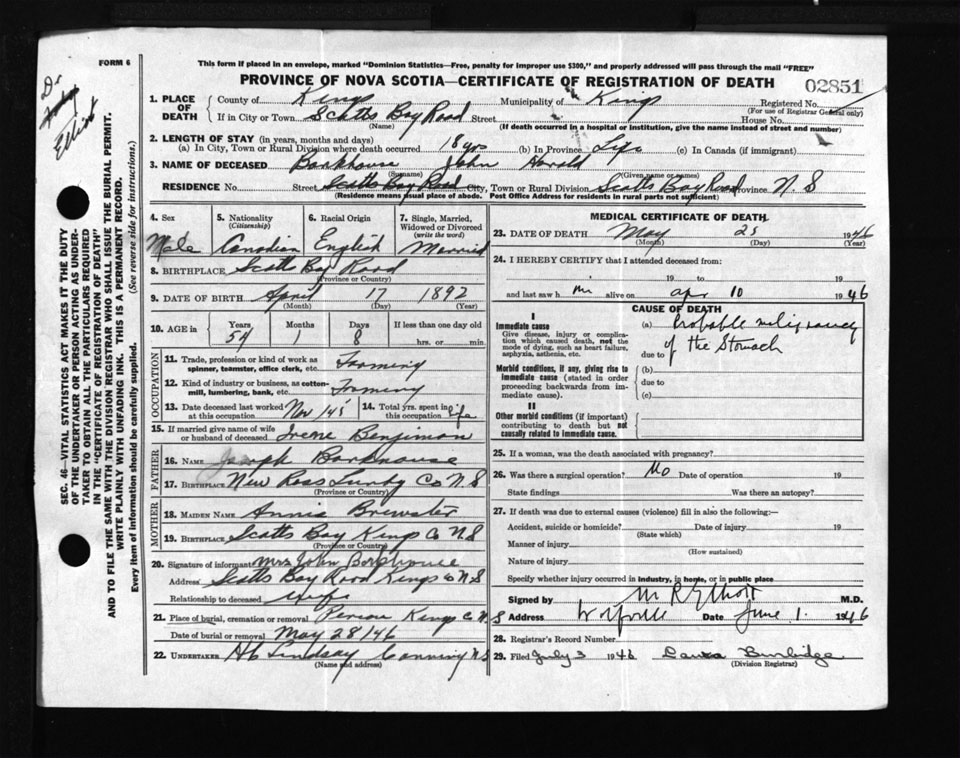 FORM 6
This form if placed in an envelope, marked "Dominion Statistics—Free, penalty for improper use $300," and properly addressed will pass through the mail "FREE"
PROVINCE OF NOVA SCOTIA—CERTIFICATE OF REGISTRATION OF DEATH
02851
Dr
Elliott
SEC. 46—VITAL STATISTICS ACT MAKES IT THE DUTY
OF THE UNDERTAKER OR PERSON ACTING AS UNDER-
TAKER TO OBTAIN ALL THE PARTICULARS REQUIRED
IN THE "CERTIFICATE OF REGISTRATION OF DEATH"
AND TO FILE THE SAME WITH THE DIVISION REGISTRAR WHO SHALL ISSUE THE BURIAL PERMIT.
WRITE PLAINLY WITH UNFADING INK. THIS IS A PERMANENT RECORD.
Every item of information should be carefully supplied. (See reverse side for instructions.)
1. PLACE OF DEATH
County of Kings Municipality of Kings Registered No.
(For use of Registrar General only)
If in City or Town Scotts Bay Road Street House No.
(Name) (If death occurred in a hospital or institution, give the name instead of street and number)
2. LENGTH OF STAY (in years, months and days)
(a) In City, Town or Rural Division where death occurred 18 yrs (b) In Province Life (c) In Canada (if immigrant)
3. NAME OF DECEASED Barkhouse John Harold
(Surname) (Given name or names)
RESIDENCE No. Street Scotts Bay Road City, Town or Rural Division Scotts Bay Road Province N. S
(Residence means usual place of abode. Post Office Address for residents in rural parts not sufficient)
4. Sex Male
5. Nationality (Citizenship) Canadian
6. Racial Origin English
7. Single, Married, Widowed or Divorced (write the word) Married
8. BIRTHPLACE Scotts Bay Road
(Province or Country)
9. DATE OF BIRTH April 17 1892
(Month) (Day) (Year)
10. AGE in Years 54 Months 1 Days 8 If less than one day old hrs. or min.
OCCUPATION
11. Trade, profession or kind of work as spinner, teamster, office clerk, etc. Farming
12. Kind of industry or business, as cotton-mill, lumbering, bank, etc. Farming
13. Date deceased last worked at this occupation Nov 145 14. Total yrs. spent in this occupation life
15. If married give name of wife or husband of deceased Irene Benjimon
FATHER
16. NAME Joseph Barkhouse
17. BIRTHPLACE New Ross Lunbg Co N S
(Province or Country)
MOTHER
18. MAIDEN NAME Annie Brewster
19. BIRTHPLACE Scotts Bay Kings Co N.S
(Province or Country)
20. Signature of informant Mrs John Barkhouse
Address Scotts Bay Road Kings Co N S
Relationship to deceased wife
21. Place of burial, cremation or removal Pereau Kings Co N. S
Date of burial or removal May 28/46
22. UNDERTAKER Lindsay Canning N S
(Name and address)
MEDICAL CERTIFICATE OF DEATH
23. DATE OF DEATH May 25 1946
(Month) (Day) (Year)
24. I HEREBY CERTIFY that I attended deceased from:
19 to 19
and last saw h im alive on apr 10 1946
CAUSE OF DEATH
I
Immediate cause
Give disease, injury or complication which caused death, not the mode of dying, such as heart failure, asphyxia, asthenia, etc.
(a) Probable malignancy
due to of the Stomach
Morbid conditions, if any, giving rise to immediate cause (stated in order proceeding backwards from immediate cause).
(b)
due to
(c)
II
Other morbid conditions (if important) contributing to death but not causally related to immediate cause.
25. If a woman, was the death associated with pregnancy?
26. Was there a surgical operation? No Date of operation 19
State findings Was there an autopsy?
27. If death was due to external causes (violence) fill in also the following:—
Accident, suicide or homicide? Date of injury 19
(State which)
Manner of injury
(How sustained)
Nature of injury
Specify whether injury occurred in industry, in home, or in public place
Signed by M R Elliott M.D.
Address Wolfville Date June 1. 1946
28. Registrar's Record Number
29. Filed July 3 1946 Laura Burbidge
(Division Registrar)